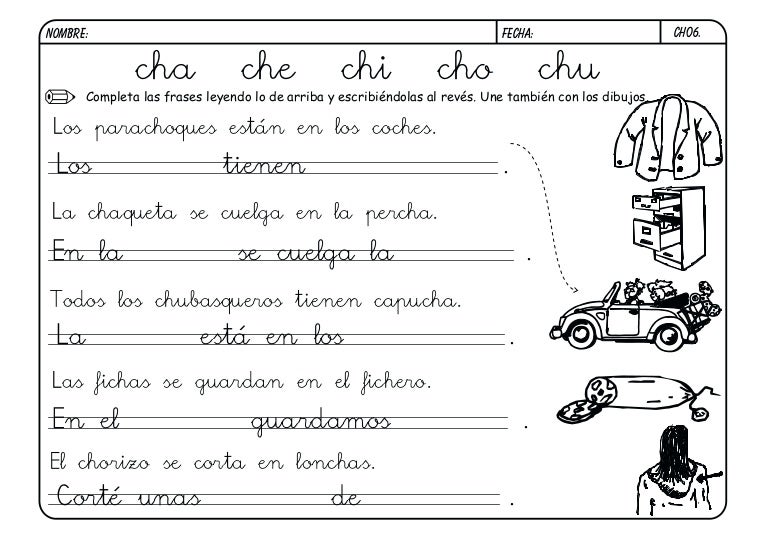 NOMBRE: FECHA: CHO6.
cha che chi cho chu
Completa las frases leyendo lo de arriba y escribiéndolas al revés. Une también con los dibujos.
Los parachoques están en los coches.
Los tienen .
La chaqueta se cuelga en la percha.
En la se cuelga la .
Todos los chubasqueros tienen capucha.
La está en los .
Las fichas se guardan en el fichero.
En el guardamos .
El chorizo se corta en lonchas.
Corté unas de .